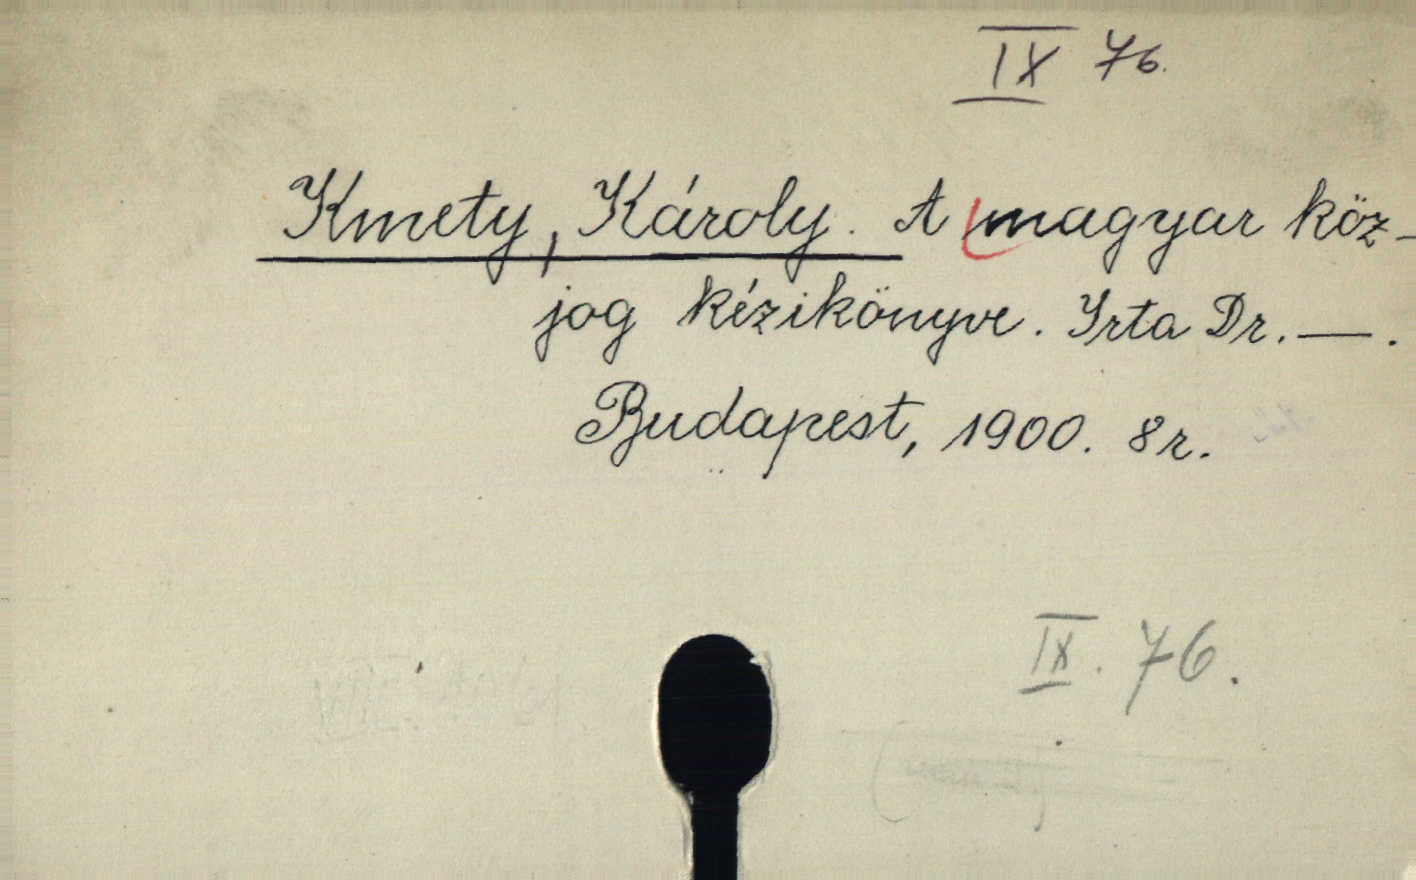 IX 76.
Kmety, Károly. A magyar köz-
jog kézikönyve. Irta Dr. —.
Budapest, 1900. 8r.
IX. 76.